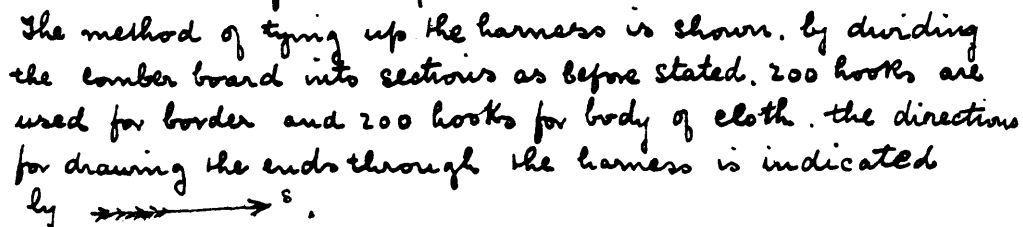 The method of tying up the harness is shown. by dividing
the comber board into sections as before stated. 200 hooks are
used for border and 200 hooks for body of cloth. the directions
for drawing the ends through the harness is indicated
by →s.